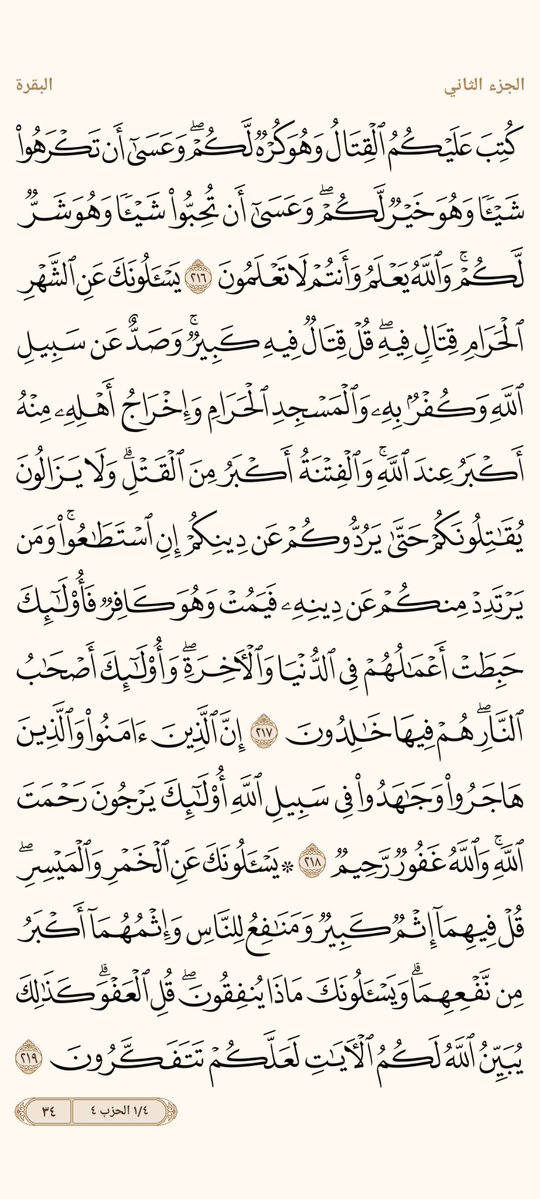 الجزء الثاني
البقرة
كُتِبَ عَلَيْكُمُ ٱلْقِتَالُ وَهُوَ كُرْهٌ لَّكُمْ ۖ وَعَسَىٰٓ أَن تَكْرَهُوا۟
شَيْـًٔا وَهُوَ خَيْرٌ لَّكُمْ ۖ وَعَسَىٰٓ أَن تُحِبُّوا۟ شَيْـًٔا وَهُوَ شَرٌّ
لَّكُمْ ۗ وَٱللَّهُ يَعْلَمُ وَأَنتُمْ لَا تَعْلَمُونَ ٢١٦ يَسْـَٔلُونَكَ عَنِ ٱلشَّهْرِ
ٱلْحَرَامِ قِتَالٍ فِيهِ ۖ قُلْ قِتَالٌ فِيهِ كَبِيرٌ ۚ وَصَدٌّ عَن سَبِيلِ
ٱللَّهِ وَكُفْرٌۢ بِهِۦ وَٱلْمَسْجِدِ ٱلْحَرَامِ وَإِخْرَاجُ أَهْلِهِۦ مِنْهُ
أَكْبَرُ عِندَ ٱللَّهِ ۚ وَٱلْفِتْنَةُ أَكْبَرُ مِنَ ٱلْقَتْلِ ۗ وَلَا يَزَالُونَ
يُقَـٰتِلُونَكُمْ حَتَّىٰ يَرُدُّوكُمْ عَن دِينِكُمْ إِنِ ٱسْتَطَـٰعُوا۟ ۚ وَمَن
يَرْتَدِدْ مِنكُمْ عَن دِينِهِۦ فَيَمُتْ وَهُوَ كَافِرٌ فَأُو۟لَـٰٓئِكَ
حَبِطَتْ أَعْمَـٰلُهُمْ فِى ٱلدُّنْيَا وَٱلْـَٔاخِرَةِ ۖ وَأُو۟لَـٰٓئِكَ أَصْحَـٰبُ
ٱلنَّارِ ۖ هُمْ فِيهَا خَـٰلِدُونَ ٢١٧ إِنَّ ٱلَّذِينَ ءَامَنُوا۟ وَٱلَّذِينَ
هَاجَرُوا۟ وَجَـٰهَدُوا۟ فِى سَبِيلِ ٱللَّهِ أُو۟لَـٰٓئِكَ يَرْجُونَ رَحْمَتَ
ٱللَّهِ ۚ وَٱللَّهُ غَفُورٌ رَّحِيمٌ ٢١٨ ۞ يَسْـَٔلُونَكَ عَنِ ٱلْخَمْرِ وَٱلْمَيْسِرِ ۖ
قُلْ فِيهِمَآ إِثْمٌ كَبِيرٌ وَمَنَـٰفِعُ لِلنَّاسِ وَإِثْمُهُمَآ أَكْبَرُ
مِن نَّفْعِهِمَا ۗ وَيَسْـَٔلُونَكَ مَاذَا يُنفِقُونَ ۖ قُلِ ٱلْعَفْوَ ۗ كَذَٰلِكَ
يُبَيِّنُ ٱللَّهُ لَكُمُ ٱلْـَٔايَـٰتِ لَعَلَّكُمْ تَتَفَكَّرُونَ ٢١٩
١/٤ الحزب ٤
٣٤